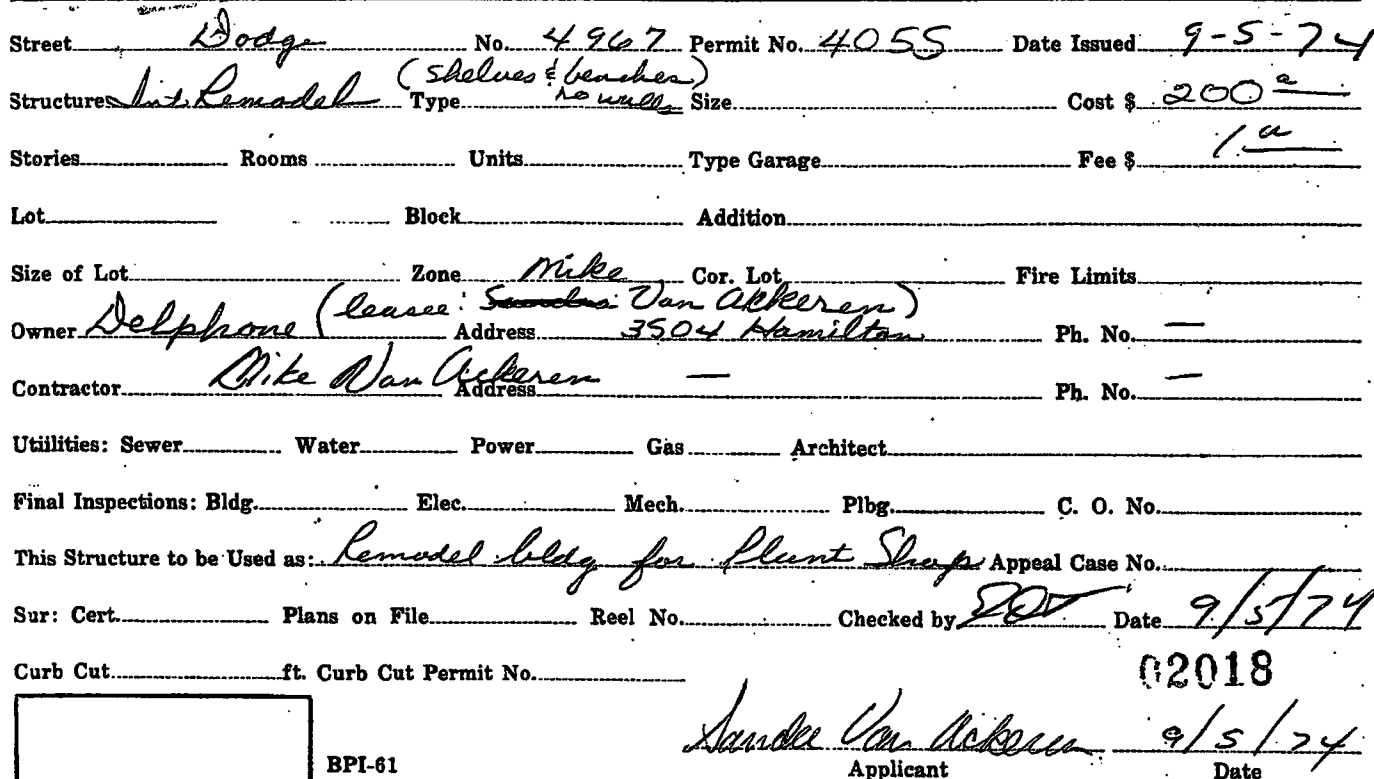 Street Dodge No. 4967 Permit No. 4055 Date Issued 9-5-74
(shelves & benches)
Structure Int. Remodel Type no walls Size Cost $ 200
Stories Rooms Units Type Garage Fee $ 1.
Lot Block Addition
Size of Lot Zone Mike Cor. Lot Fire Limits
(leasee: Van Akkeren)
Owner Delphone Address 3504 Hamilton Ph. No. —
Contractor Mike Van Ackeren Address — Ph. No. —
Utiilities: Sewer Water Power Gas Architect
Final Inspections: Bldg. Elec. Mech. Plbg. C. O. No.
This Structure to be Used as: Remodel bldg for Plant Shop Appeal Case No.
Sur: Cert. Plans on File Reel No. Checked by Date 9/5/74
Curb Cut ft. Curb Cut Permit No. 02018
Sandee Van Ackeren 9/5/74
BPI-61 Applicant Date